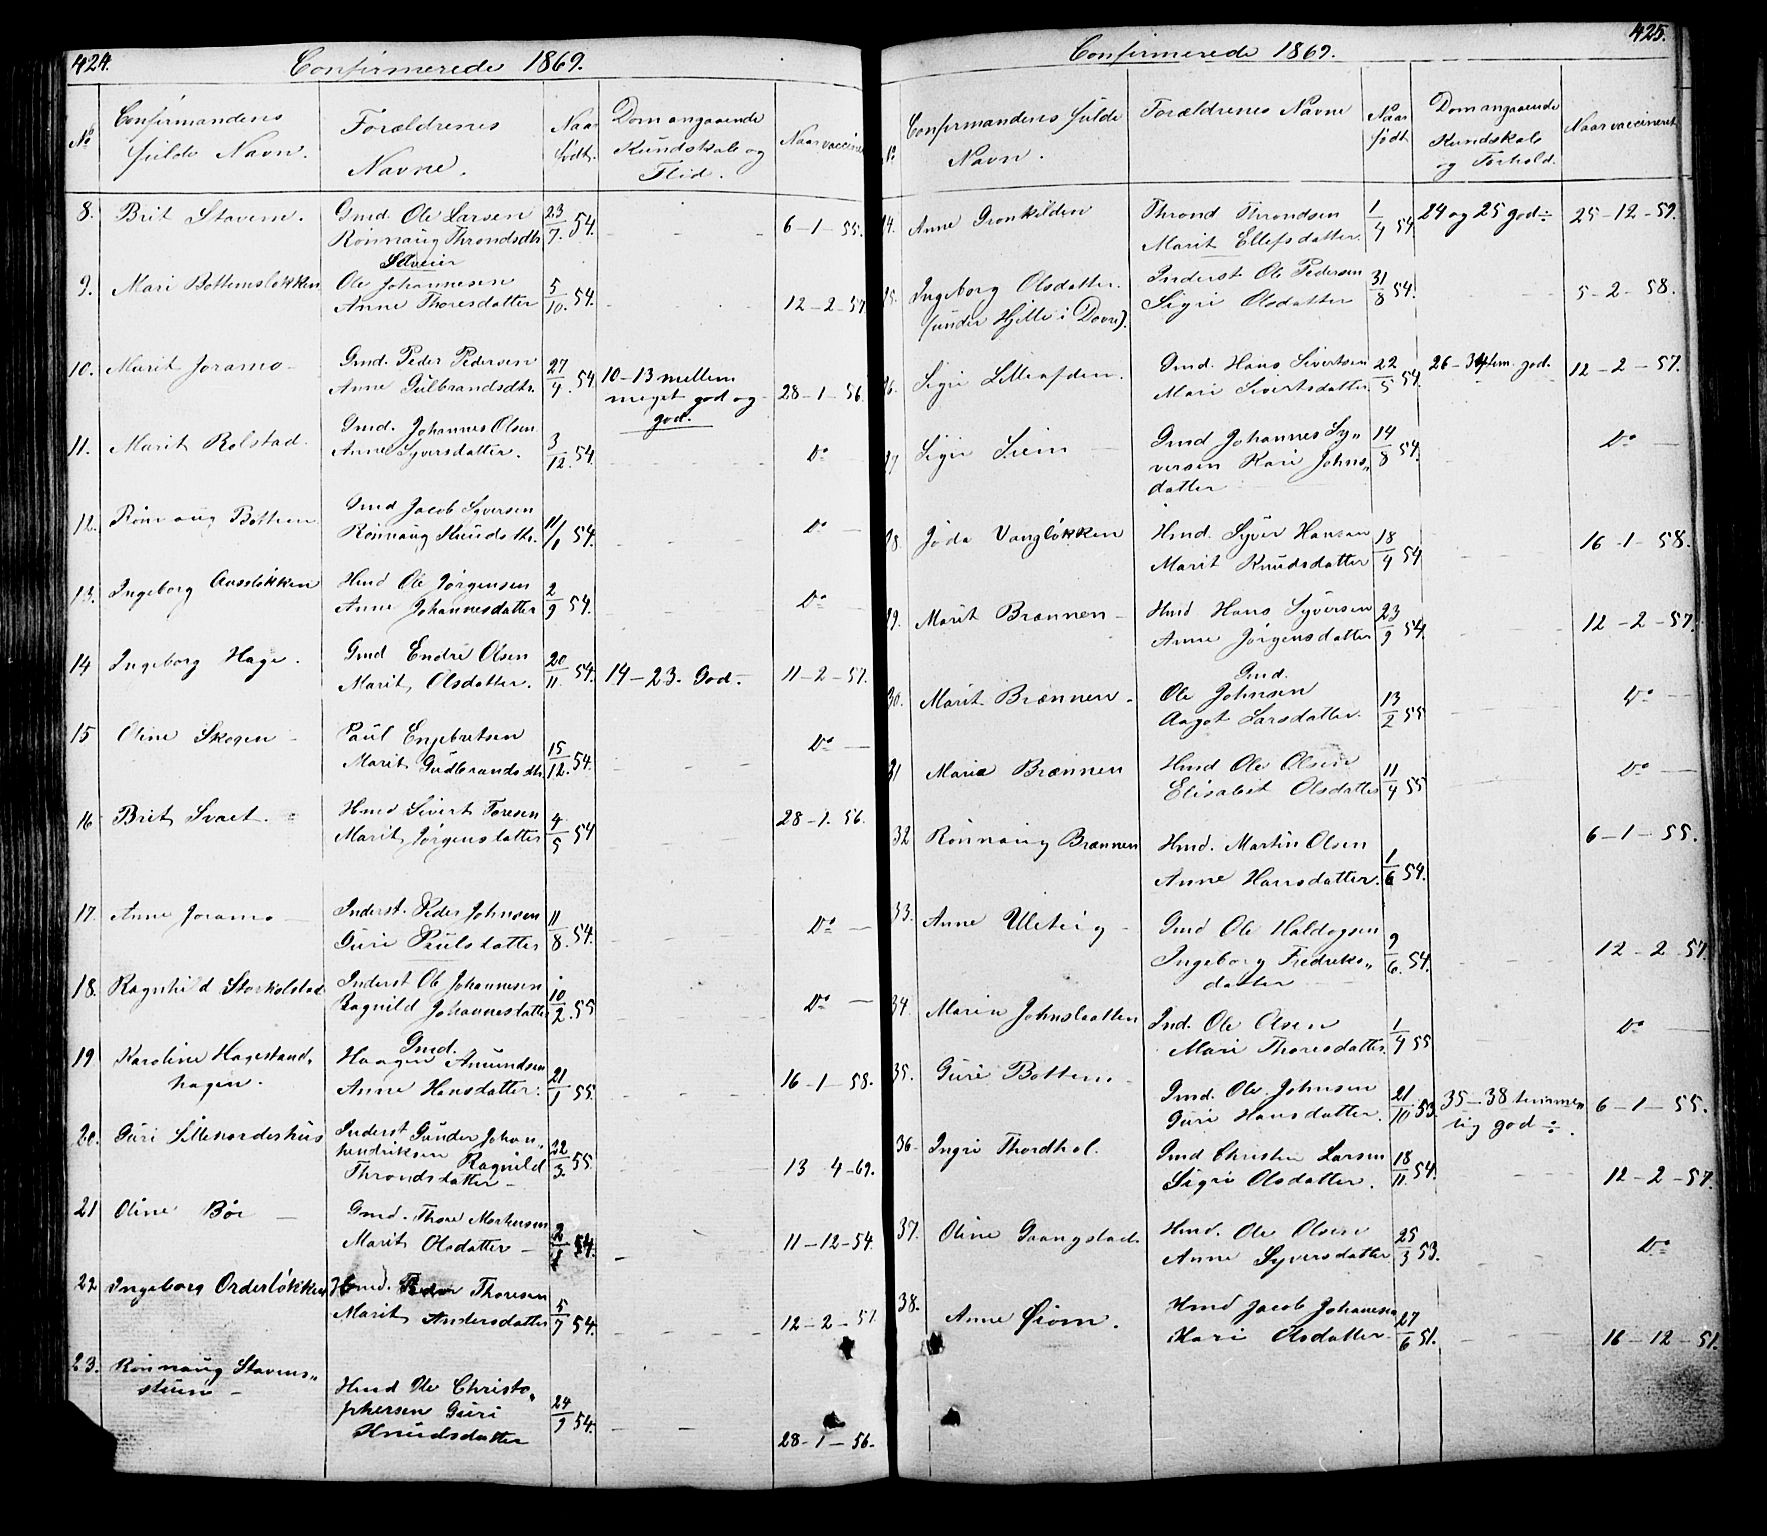 424.
Confirmerede 1869.
No
Confirmandens fulde Navn.
Forældrenes Navne.
Naar født.
Dom angaaende Kundskab og Flid.
Naar vaccineret
8. Brit Stavem. Gmd. Ole Larsen 23/7. 54. 6-1-55.
Rønnaug Throndsdtr.
9. Mari Bottemsløkken Selveier
Ole Johannesen 5/10. 54. 12-2-57
Anne Thoresdatter
10. Marit Joramo Gmd. Peder Pedersen 27/4. 54. 10-13 mellem 28-1-56.
Anne Gulbrandsdtr. meget god og
god.
11. Marit Rolstad. Gmd. Johannes Olsen 3/12. 54. Do
Anne Syversdatter.
12. Rønnaug Bottem Gmd Jacob Syversen 11/1 54. Do
Rønnaug Knudsdtr.
13. Ingeborg Hmd Ole Jørgensen 2/9 54. Do
Anne Johannesdatter
14 Ingeborg Hage. Gmd Endre Olsen 20/11 54. 14-23. God. 11-2-57.
Marit Olsdatter.
15 Oline Skogen Paul Engebretsen 15/12. 54. Do
Marit Gudbrandsdtr
16 Brit Svaet. Hmd Sivert Toresen 4/5 54 28-1-56.
Marit Jørgensdatter
17. Anne Joramo Inderst. Peder Johnsen 11/8. 54. Do
Guri Paulsdatter
18. Ragnhild Storkolstad Inderst Ole Johannesen 10/2. 55 Do
Ragnild Johannesdatter
19 Karoline Hagestand, Gmd.
Haagen Amundsen 21/1 55. 16-1-58.
hagen. Anne Hansdatter.
20. Guri Lillehordeshus Inderst Gunder Johan,, 22/3. 55. 13 4-69.
hendriksen Ragnild
Throndsdatter
21 Oline Bøe Gmd. Thore Mortensen 54. 11-12-54.
Marit Olsdatter
22 Ingeborg Ordersløkken Hmd. Peder Thoresen 5/7 54. 12-2-57
Marit Andersdatter
23. Rønnaug Stavems,, Hmd Ole Christo,, 24/9 54. 28-1-56.
stuen phersen Guri
Knudsdatter
425.
Confirmerede 1869.
No
Confirmandens fulde Navn.
Forældrenes Navne
Naar født
Dom angaaende Kundskab og Forhold.
Naar vaccineret
24. Anne Grønkilden Thrond Throndsen 1/4 54 24 og 25 god÷ 25-12-59.
Marit Ellefsdatter.
25. Ingeborg Olsdatter. Inderst. Ole Pedersen 31/8 54. 5-2-58.
(under Hjelle i Dovre). Sigri Olsdatter
26. Sigri Gmd. Hans Sivertsen 22/5 54. 26-34 tem. god. 12-2-57.
Mari Sivertsdatter.
27 Sigri Siem Gmd Johannes Sy,, 14/8 54. Do
versen Kari Johns,,
datter
28. Jøda Vangløkken Hmd. Syver Hansen 18/4 54 16-1-58.
Marit Knudsdatter
29. Marit Brænnen Hmd Hans Syversen 23/9 54. 12-2-57.
Anne Jørgensdatter
30. Marit Brænnen Gmd.
Ole Johnsen 13/2 55 Do
Aagot Larsdatter.
31 Maria Brænnen Hmd Ole Olsen 11/4 55 Do
Elisabet Olsdatter
32 Rønnaug Brænnen Hmd. Martin Olsen 1/6 54. 6-1-55.
Anne Hansdatter.
33. Anne Uleteig Gmd Ole Haldogsen 9/6. 54. 12-2-57.
Ingeborg Fredriks,,
datter
34. Marie Johnslaatten Ind. Ole Olsen 1/4 55 Do
Mari Thoresdatter.
35. Guri Bottem Gmd. Ole Johnsen 21/10 53. 35-38 temme,, 6-1-55.
Guri Hansdatter. lig god÷.
36. Ingri Thordhol. Gmd Christen Larsen 18/11. 54. 12-2-57.
Sigri Olsdatter.
37. Oline Graangstad Hmd. Ole Olsen 25/3 53. Do
Anne Syversdatter
38. Anne Øiom. Hmd Jacob Johannesen 27/6 51. 16-12-51.
Kari Olsdatter